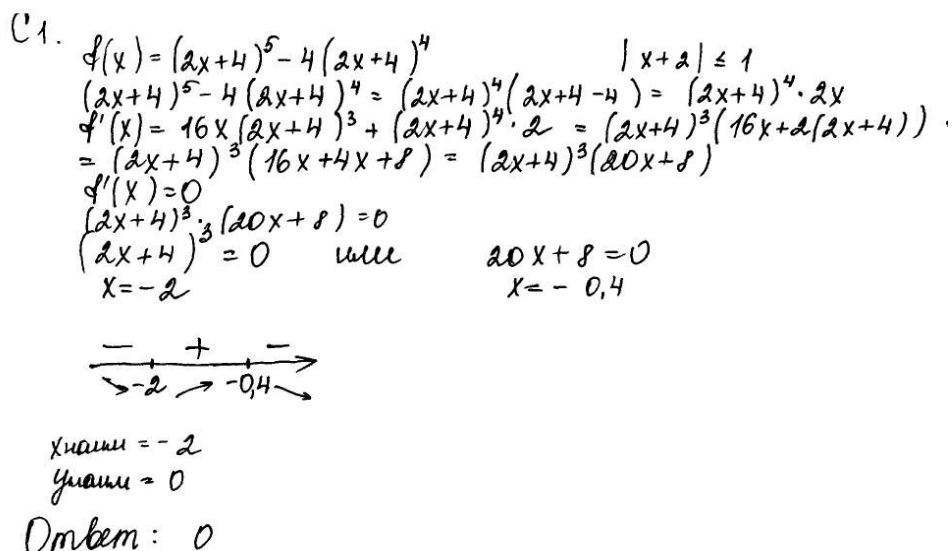 С1.
f(x) = (2x+4)^5 - 4(2x+4)^4 |x+2| ≤ 1
(2x+4)^5 - 4(2x+4)^4 = (2x+4)^4(2x+4-4) = (2x+4)^4 · 2x
f'(x) = 16x(2x+4)^3 + (2x+4)^4 · 2 = (2x+4)^3(16x+2(2x+4))
= (2x+4)^3(16x+4x+8) = (2x+4)^3(20x+8)
f'(x)=0
(2x+4)^3 · (20x+8)=0
(2x+4)^3 = 0 или 20x+8=0
x=-2 x=-0,4
− + −
-2 -0,4
xнаим = -2
yнаим = 0
Ответ: 0